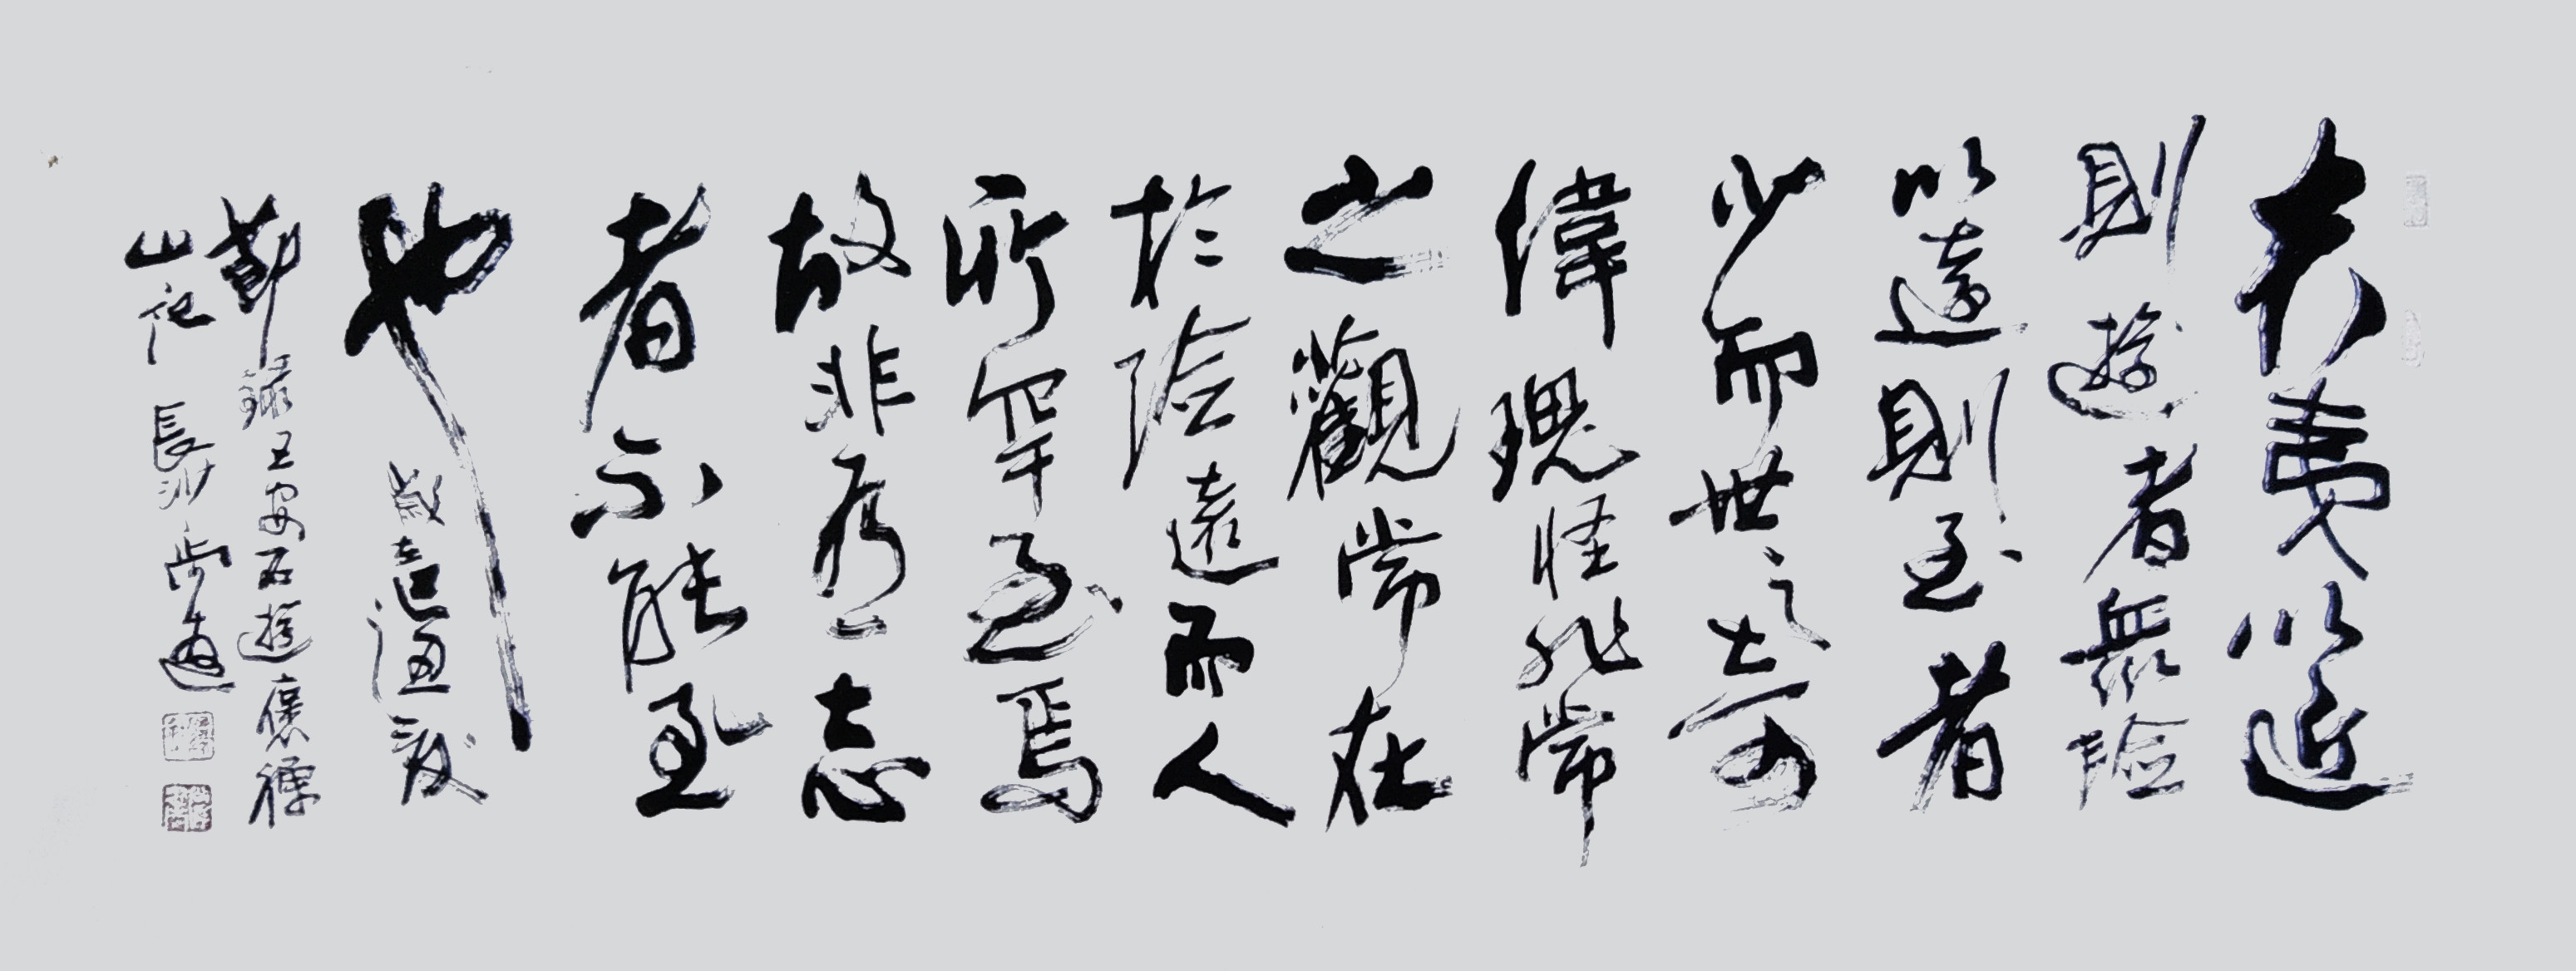 夫夷以近
則遊者衆險
以遠則至者
少而世之奇
偉瑰怪非常
之觀常在
於險遠而人
所罕至焉
故非有志
者不能至
也
節錄王安石遊褒禪
山記 長沙